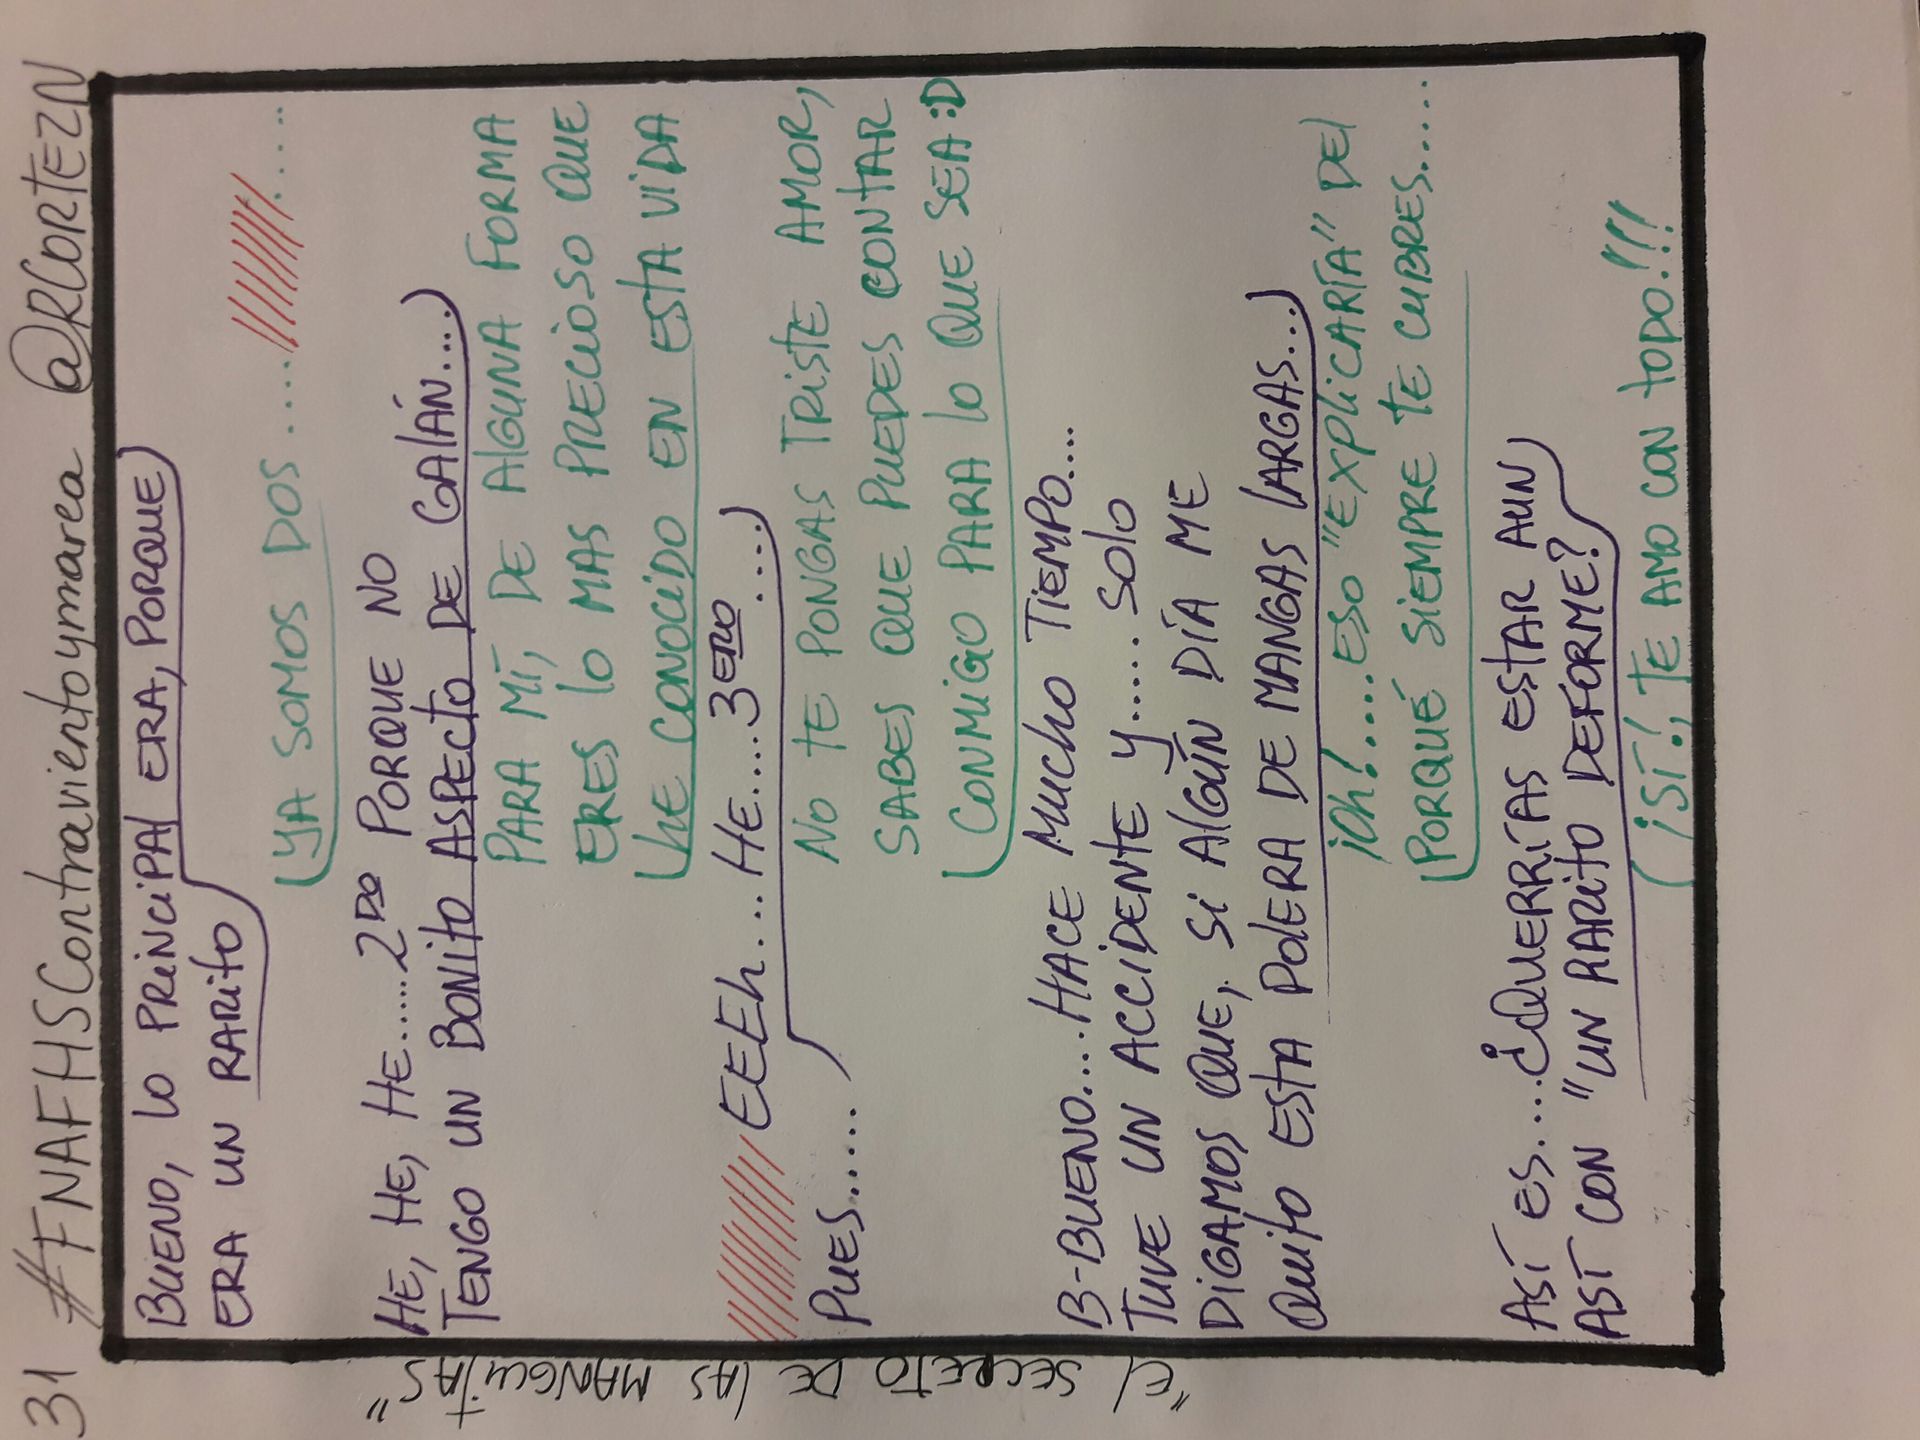 31 #FNAFHSContravientoymarea @RCORTEZN
"El SECRETO DE lAS MANGUITAS"
BUENO, lo PRiNCiPAl ERA, PORQUE
ERA UN RARito
YA SOMOS DOS ..... .....
HE, HE, HE......2DO PORQUE NO
TENGO UN BONito ASPECto DE GAlÁN....
PARA MÍ, DE AlGUNA FORMA
ERES lo MAS PRECiOSO QUE
HE CONOCiDO EN ESTA ViDA
EEEh....HE....3ERO....
PUES.....
No TE PONGAS TRiSTE AMOR,
SABES QUE PUEDES CONTAR
CONMiGO PARA lo QUE SEA :D
B-BUENO....HACE MUCho TiEMPO....
TUVE UN ACCiDENTE Y......Solo
DiGAMOS QUE, Si AlGÚN DÍA ME
QUito ESTA PolERA DE MANGAS lARGAS...
¡Oh!....ESO "EXPliCARÍA" DEl
PORQUÉ SiEMPRE TE CUBRES.....
ASÍ ES....¿QUERRÍAS ESTAR AUN
ASÍ CON "UN RARito DEFORME?
¡SÍ!, TE AMO CON toDO!!!